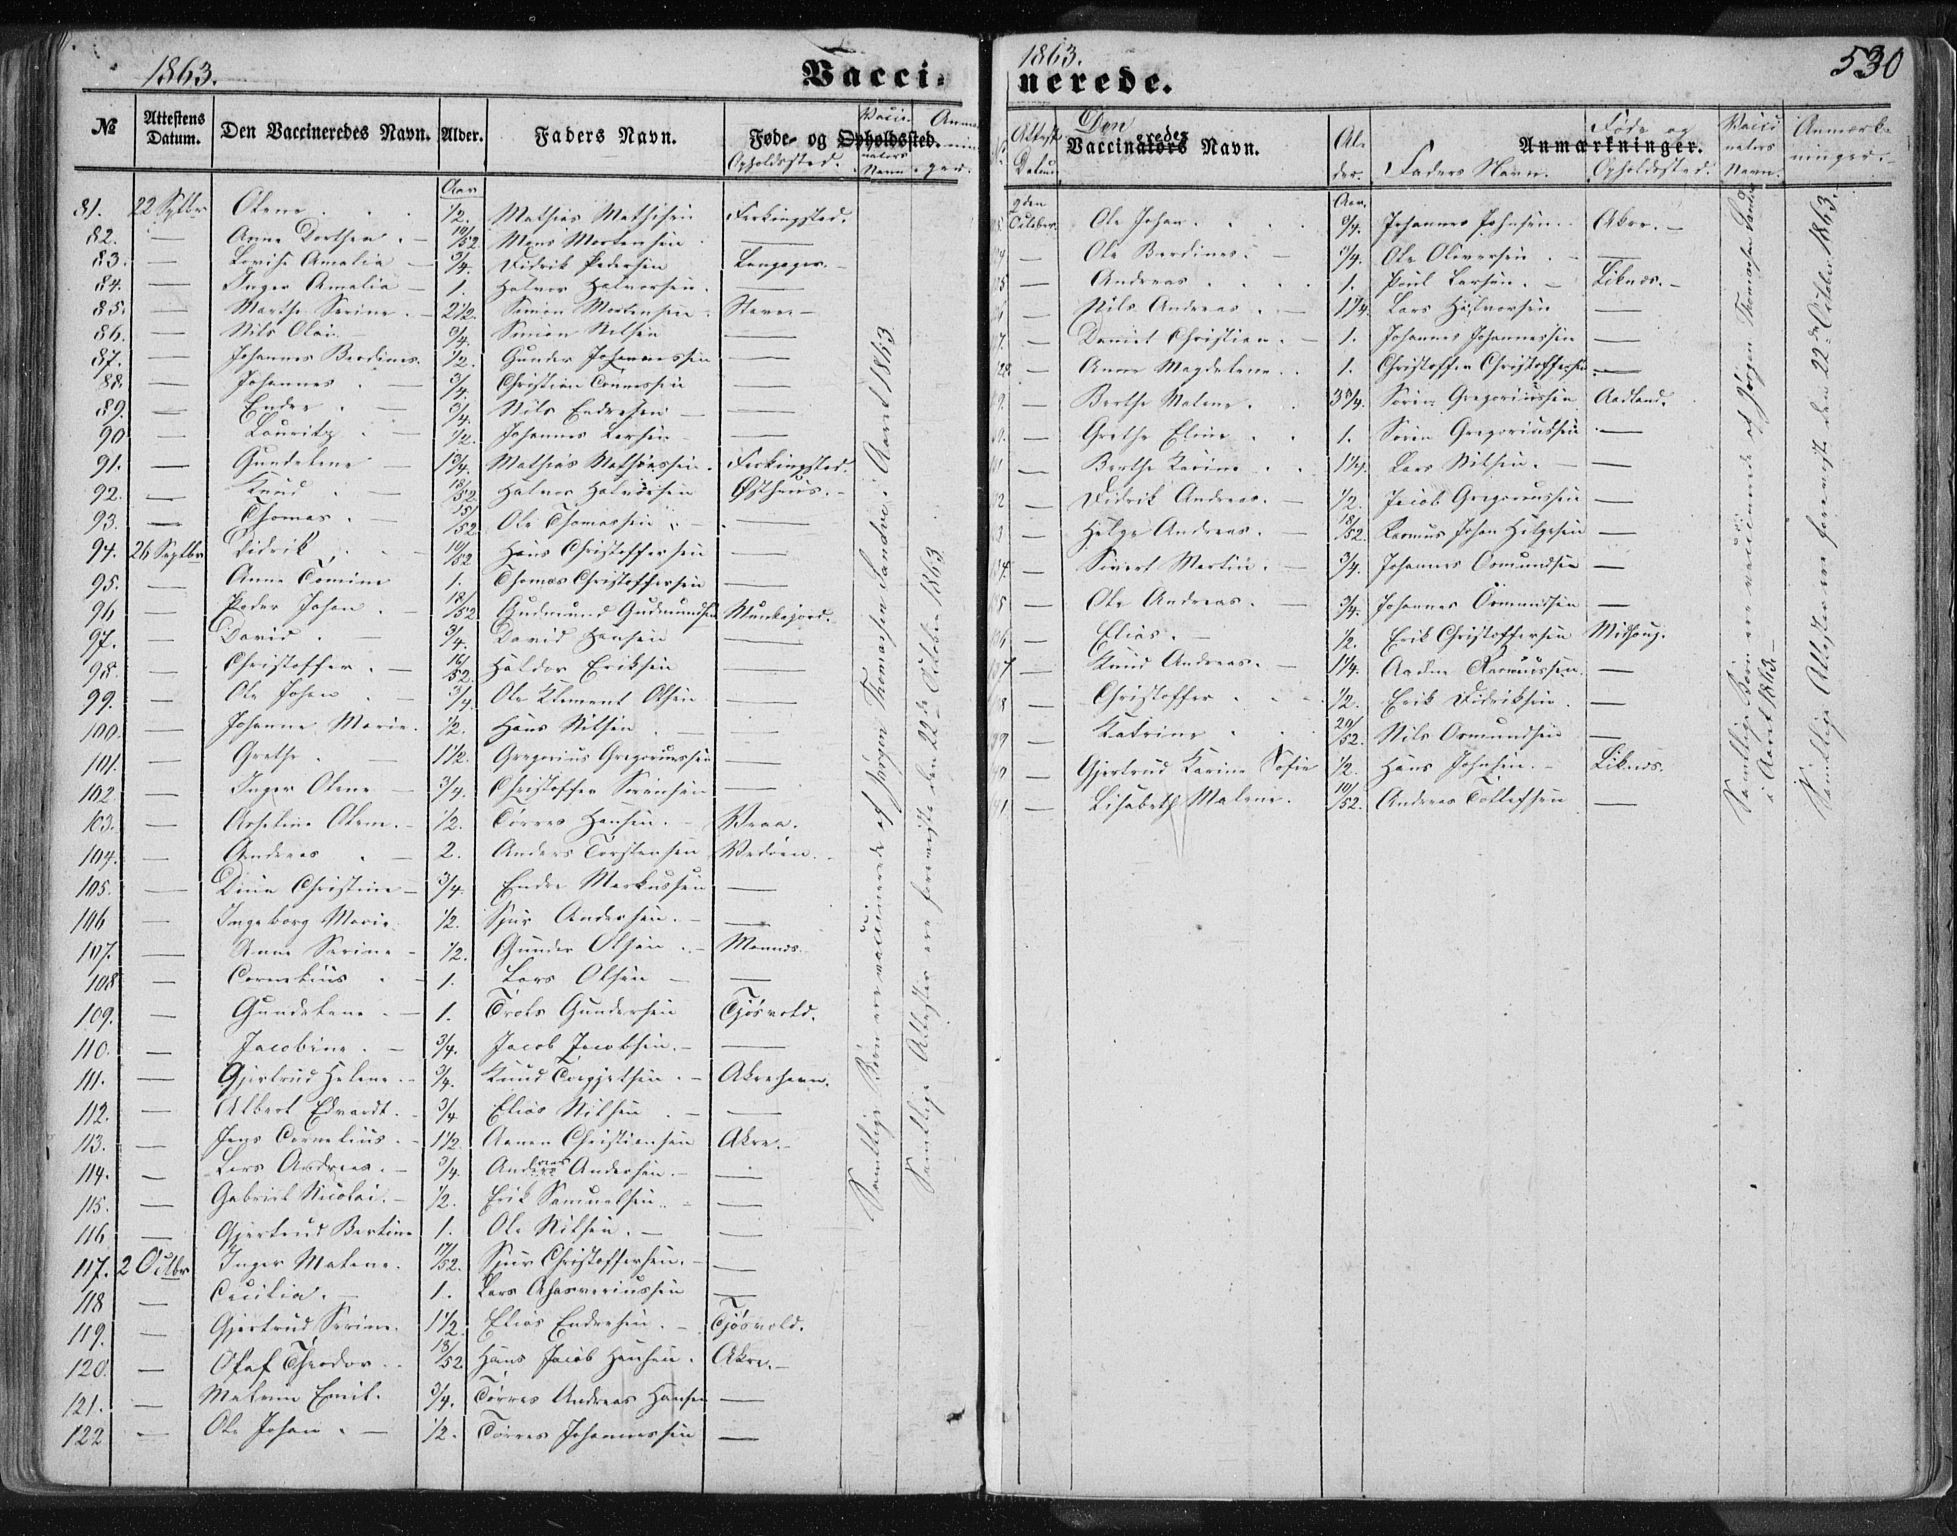 1863.
Vacci-
№ Attestens Datum. Den Vaccineredes Navn. Alder. Faders Navn. Føde- og Opholdssted.
Opholdssted.
Aar
81. 22 Septbr Olene 1/2. Mathias Mathisen Ferkingstad.
82. — Anne Dorthea — 10/52 Mons Mortensen —
83. — Lovise Amalia — 3/4. Didrik Pedersen Langager. —
84. — Inger Amalia — 1. Halvor Halvorsen. —
85. — Marthe Serine. — 2 1/2. Simon Mortensen. Stava —
86. — Nils Olai 3/4. Simon Nilsen —
87. — Johannes Berdines. 1/2. Gunder Johannessen —
88. — Johannes. — 3/4. Christian Tonnessen —
89. — Endre. — 3/4. Nils Endresen —
90 — Lauritz. — 1/2. Johannes Larsen —
91. — Gundelene — 1 3/4. Mathias Mathiassen. Ferkingstad.
92. — Knud. — 18/52. Halvor Halvorsen Østhuus. —
93. — Thomas. — 15/52. Ole Thomassen —
94. 26 Septbr Didrik 10/52 Hans Christoffersen —
95. — Anne Tomine 1. Thomas Christoffersen —
96 — Peder Johan. — 18/52 Gudmund Gudmundsen Munkejord.
97. — David. — 3/4. David Hansen —
98. — Christoffer. — 16/52. Haldor Eriksen —
99. — Ole Johan — 3/4. Ole Klement Olsen —
100. — Johanne Marie. 1/2. Hans Nilsen —
101. — Grethe. — 1 1/2. Gregorius Gregoriussen —
102 — Inger Olene — 3/4. Christoffer Sörensen —
103. — Asseline Olene. — 1/2. Törres Hansen. — Vraa.
104. — Andreas — 2. Anders Torstensen Vedöen.
105. — Dina Christine — 3/4. Endre Markussen —
106 — Ingeborg Marie. 1/2. Sjur Andersen. — —
107. — Anne Serine — 1/2. Gunder Olsen. — Mannes.
108 — Cornelius — 1. Lars Olsen — —
109. — Gundelene. — 1. Trols Gundersen Tjösvold.
110. — Jacobine. — 3/4. Jacob Jacobsen. — —
111. — Gjertrud Helene. — 3/4. Knud Torgjelsen. — Akrehavn.
112. — Albert Edvardt. — 3/4 Elias Nilsen. — —
113. — Jens Cornelius. — 1 1/2. Aanen Christiansen Akre. —
114. — Lars Andreas. — 3/4. Andreas Andersen. — —
115. — Gabriel Nicolai. — 1/2. Erik Samuelsen. — —
116 — Gjertrud Bertine 1. Ole Nilsen. — —
117. 2 Octbr Inger Malene. 17/52. Sjur Christoffersen. — —
118 — Cecilia. — 1. Lars Ahasveriussen —
119. — Gjertrud Serine. 1 1/2. Elias Endresen. — Tjösvold.
120. — Olaf Theodor. 18/52 Hans Jacob Hansen. Akre. —
121. — Malvin Emil. 3/4. Törres Andreas Hansen —
122 — Ole Johan. — 1/2. Törres Johannessen —
Samtlige Börn ere vaccinerede af Jörgen Thomassen Sandve i Aaret 1863
Samtlige Attester ere foreviste den 22de October 1863
1863.
530
nerede.
Attest Datum Den Vaccineredes Navn. Alder. Faders Navn. Føde og Opholdssted. Vaccinators Navn. Anmærkninger. Anmærkninger. —
Aar.
2den October Ole Johan. 3/4. Johannes Johnsen. Akre. —
— Ole Berdines. — 3/4. Ole Oliversen. —
— Andreas 1. Poul Larsen. — Liknes. —
— Nils Andreas 1 1/4. Lars Halvorsen —
— Daniel Christian. — 1. Johannes Johannessen —
— Anne Magdalene. 1. Christoffer Christoffersen —
— Berthe Malene. 3 3/4. Sören Gregoriussen Aadland.
— Grethe Eline 1. Sören Gregoriussen —
— Berthe Karine 1 1/4. Lars Nilsen. — —
— Didrik Andreas. — 1/2. Jacob Gregoriussen —
— Helge Andreas. — 18/52. Rasmus Johan Helgesen —
— Sivert Martin. — 3/4. Johannes Osmundsen —
— Ole Andreas. — 3/4. Johannes Osmundsen —
— Elias. — 1/2. Erik Christoffersen Midhoug.
— Knud Andreas. — 1 1/4. Aadne Rasmussen. —
— Christoffer — 1/2. Erik Didriksen. —
— Katrine 20/52. Nils Osmundsen —
— Gjertrud Karine Sofie 1/2. Hans Johnsen. — Liknes.
— Lisabeth Malene. 10/52. Andreas Tollefsen —
Samtlige Börn ere vaccinerede af Jörgen Thomassen Sandve i Aaret 1863. —
Samtlige Attester ere foreviste den 22de October 1863.